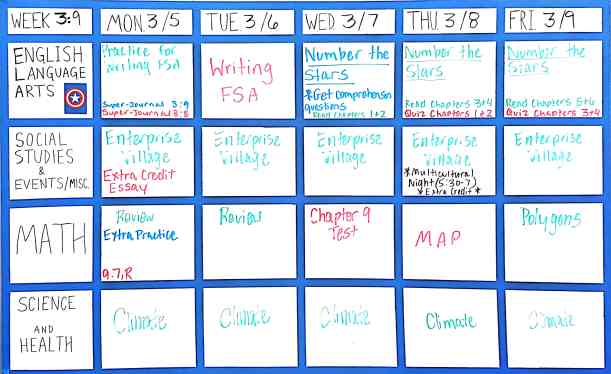 WEEK 3:9
MON 3/5
TUE 3/6
WED 3/7
THU 3/8
FRI 3/9
ENGLISH
LANGUAGE
ARTS
Practice for
Writing FSA
Super-Journal 3:9
Super-Journal 3:8
Writing
FSA
Number the
Stars
*Get comprehension
questions
Read Chapters 1+2
Number the
Stars
Read Chapters 3+4
Quiz Chapters 1+2
Number the
Stars
Read Chapters 5+6
Quiz Chapters 3+4
SOCIAL
STUDIES
&
EVENTS/MISC.
Enterprise
Village
Extra Credit
Essay
Enterprise
Village
Enterprise
Village
Enterprise
Village
*Multicultural
Night(5:30-7)
*Extra Credit*
Enterprise
Village
MATH
Review
Extra Practice
9.7,R
Review
Chapter 9
Test
MAP
Polygons
SCIENCE
AND
HEALTH
Climate
Climate
Climate
Climate
Climate